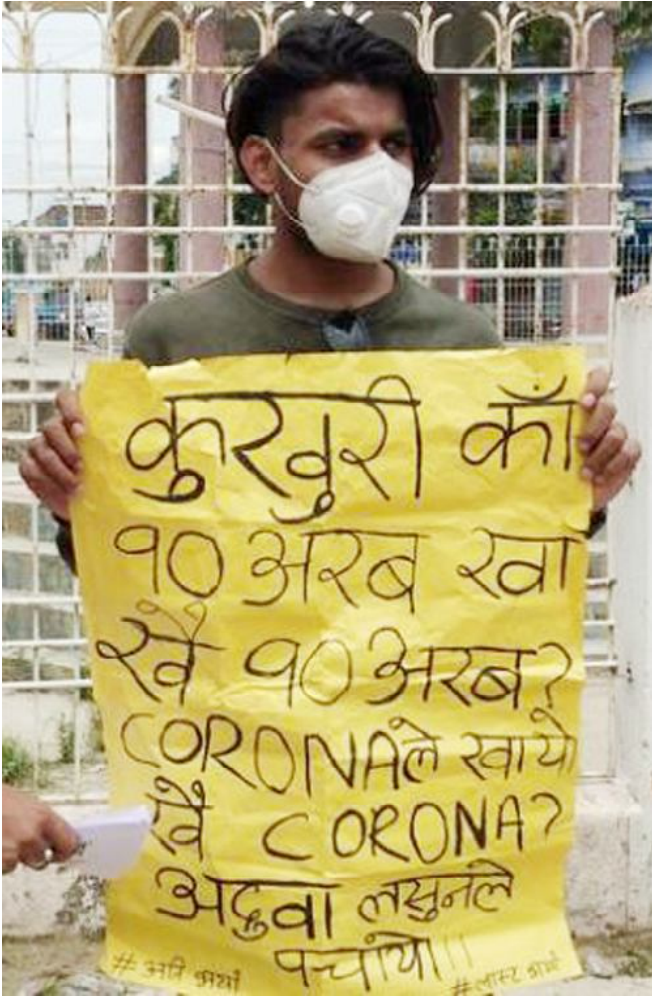 कुरखुरी काँ
१० अरब खा
खै १० अरब?
CORONAले खायो
खै CORONA?
अदुवा लसुनले
पचायो।।
# अति भयो
# लास्ट भयो